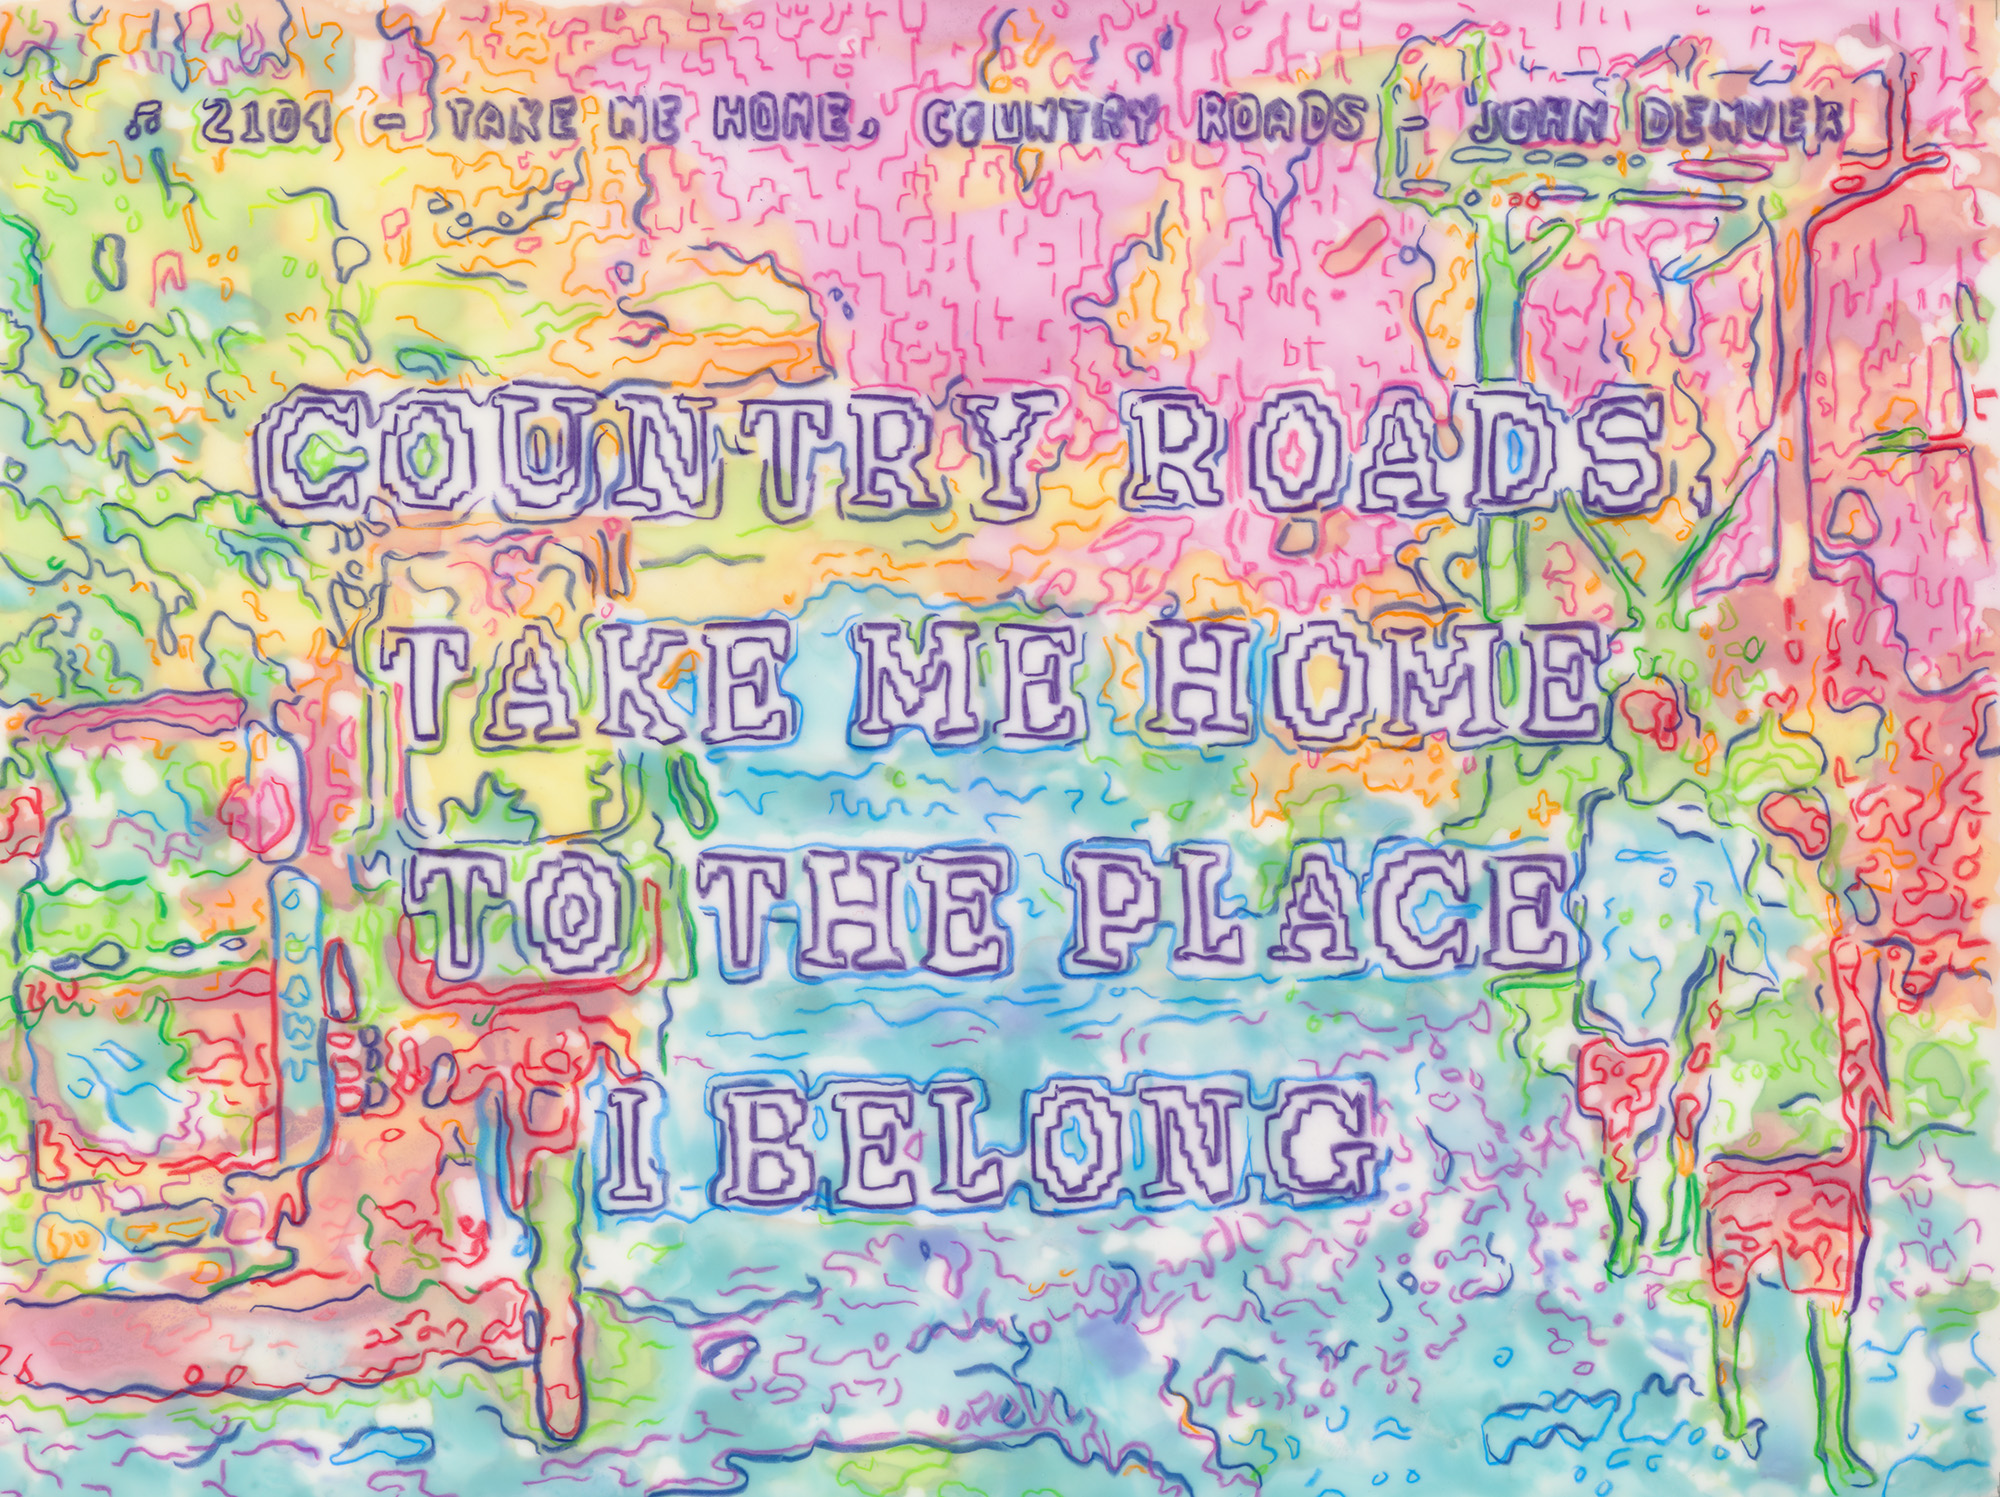 ♫ 2104 - TAKE ME HOME, COUNTRY ROADS - JOHN DENVER
COUNTRY ROADS,
TAKE ME HOME
TO THE PLACE
I BELONG